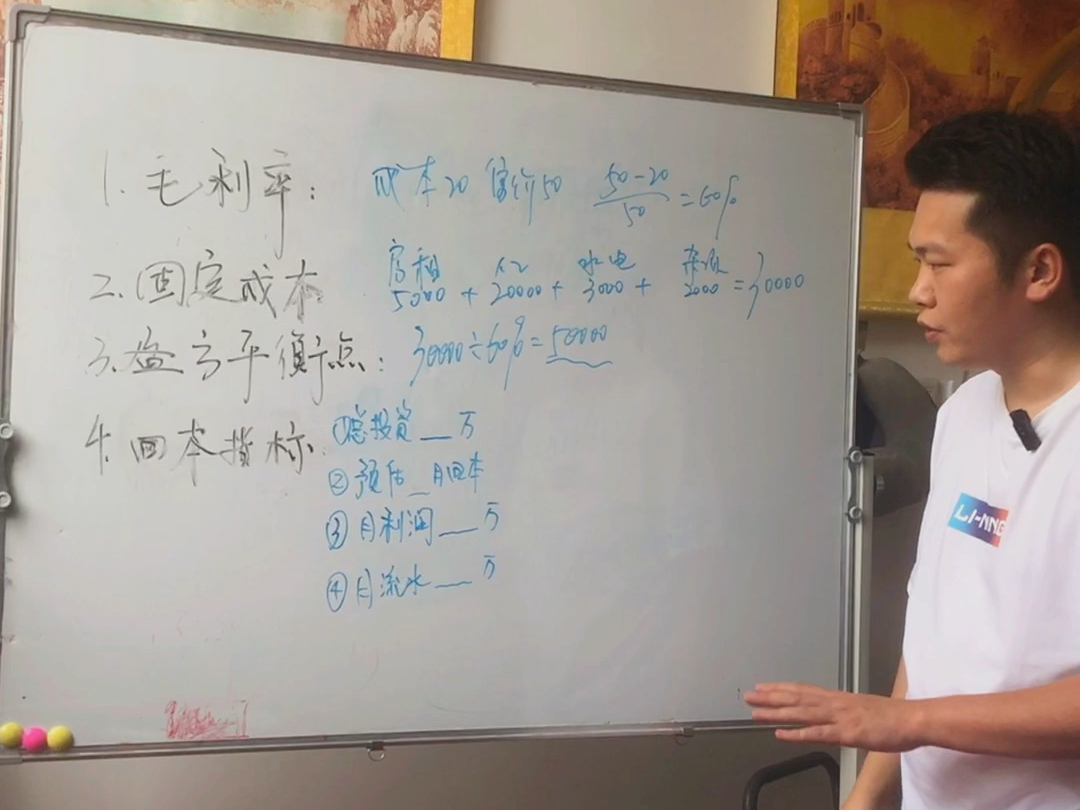 1.毛利率: 成本20 售价50 50-20/50=60%
房租 人工 水电 杂项
2.固定成本 5000 + 20000 + 3000 + 2000 = 30000
3.盈亏平衡点: 30000÷60%=50000
4.回本指标: ①总投资__万
②预估_月回本
③月利润__万
④月流水__万
LI-NING